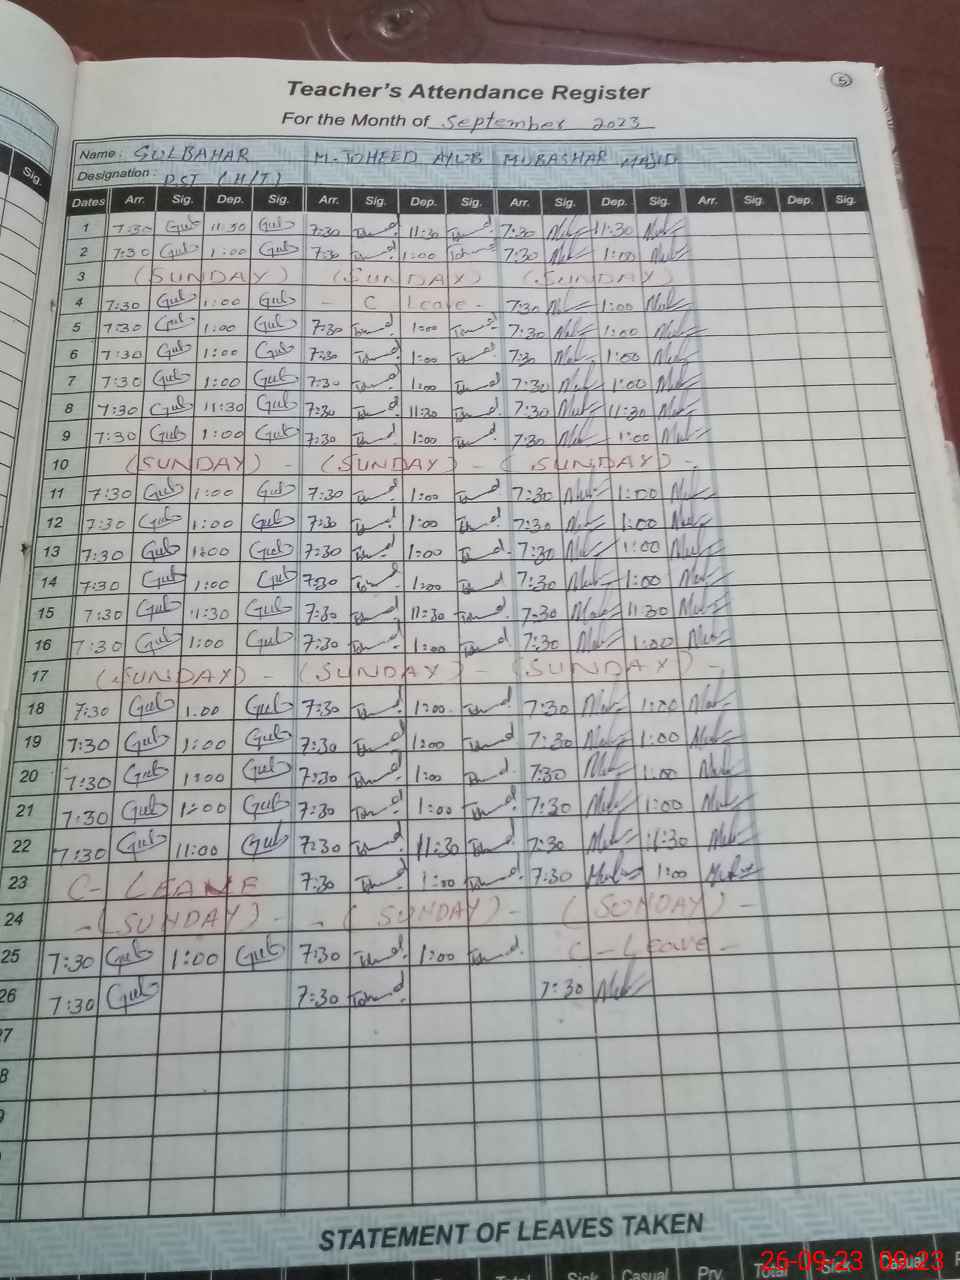 5
Teacher's Attendance Register
For the Month of September 2023
Name : GULBAHAR M. TOHEED AYUB MUBASHAR MAJID
Designation : PST (H/T)
Sig.
Dates Arr. Sig. Dep. Sig. Arr. Sig. Dep. Sig. Arr. Sig. Dep. Sig. Arr. Sig. Dep. Sig.
1 7:30 Gul 11:30 Gul 7:30 11:30 7:30 11:30
2 7:30 Gul 1:00 Gul 7:30 1:00 7:30 1:00
3 (SUNDAY) (SUNDAY) (SUNDAY)
4 7:30 Gul 1:00 Gul - C Leave - 7:30 1:00
5 7:30 Gul 1:00 Gul 7:30 1:00 7:30 1:00
6 7:30 Gul 1:00 Gul 7:30 1:00 7:30 1:00
7 7:30 Gul 1:00 Gul 7:30 1:00 7:30 1:00
8 7:30 Gul 11:30 Gul 7:30 11:30 7:30 11:30
9 7:30 Gul 1:00 Gul 7:30 1:00 7:30 1:00
10 (SUNDAY) - (SUNDAY) - (SUNDAY) -
11 7:30 Gul 1:00 Gul 7:30 1:00 7:30 1:00
12 7:30 Gul 1:00 Gul 7:30 1:00 7:30 1:00
13 7:30 Gul 1:00 Gul 7:30 1:00 7:30 1:00
14 7:30 Gul 1:00 Gul 7:30 1:00 7:30 1:00
15 7:30 Gul 11:30 Gul 7:30 11:30 7:30 11:30
16 7:30 Gul 1:00 Gul 7:30 1:00 7:30 1:00
17 (SUNDAY) - (SUNDAY) - (SUNDAY) -
18 7:30 Gul 1:00 Gul 7:30 1:00 7:30 1:00
19 7:30 Gul 1:00 Gul 7:30 1:00 7:30 1:00
20 7:30 Gul 1:00 Gul 7:30 1:00 7:30 1:00
21 7:30 Gul 1:00 Gul 7:30 1:00 7:30 1:00
22 7:30 Gul 11:00 Gul 7:30 11:30 7:30 11:30
23 C- LEAVE 7:30 1:00 7:30 1:00
24 - (SUNDAY) - - (SUNDAY) - (SUNDAY) -
25 7:30 Gul 1:00 Gul 7:30 1:00 C - Leave -
26 7:30 Gul 7:30 7:30
7
8
9
STATEMENT OF LEAVES TAKEN
Total Sick Casual Prv. Total Sick Casual
26-09-23 09:23